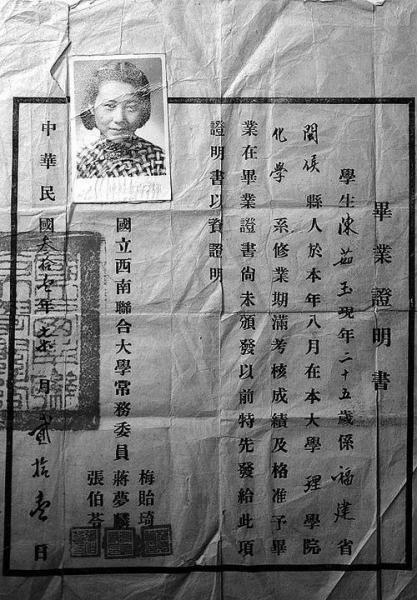 畢業證明書
學生陳茹玉現年二十五歲係福建省
閩侯縣人於本年八月在本大學理學院
化學系修業期滿考核成績及格准予畢
業在畢業證書尚未頒發以前特先發給此項
證明書以資證明
國立西南聯合大學常務委員
梅貽琦
蔣夢麟
張伯苓
中華民國叁拾壹年月貳拾壹日